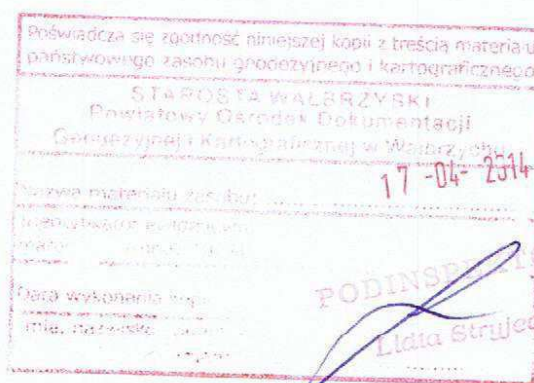 Poświadcza się zgodność niniejszej kopii z treścią materiału
państwowego zasobu geodezyjnego i kartograficznego
STAROSTA WAŁBRZYSKI
Powiatowy Ośrodek Dokumentacji
Geodezyjnej i Kartograficznej w Wałbrzychu
17 -04- 2014
Nazwa materiału zasobu:
Identyfikator
Data wykonania
PODINSPEKTO
Lidia Strujec